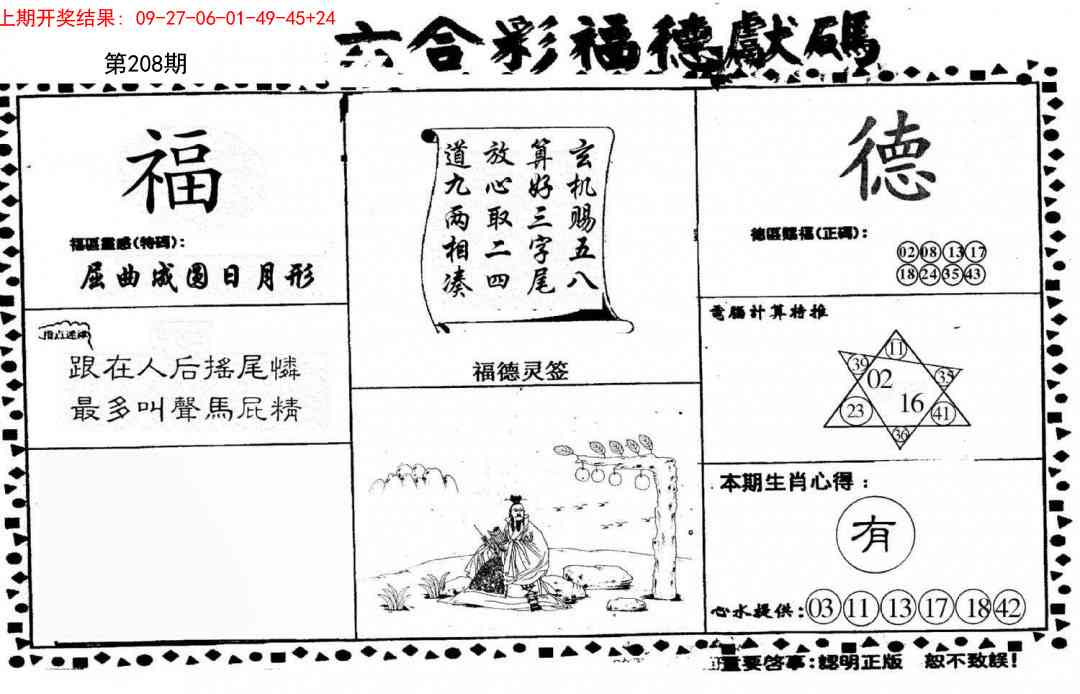 上期开奖结果：09-27-06-01-49-45+24
第208期
六合彩福德獻碼
福
福區靈感(特碼)：
屈曲成圆日月形
跟在人后搖尾憐
最多叫聲馬屁精
玄机赐五八
算好三字尾
放心取二四
道九两相凑
福德灵签
德
德區賜福(正碼)：
02 08 13 17
18 24 35 43
電腦計算特推
11
39 02 35
23 16 41
36
本期生肖心得：
有
心水提供：03 11 13 17 18 42
重要啓事：認明正版 恕不致誤！